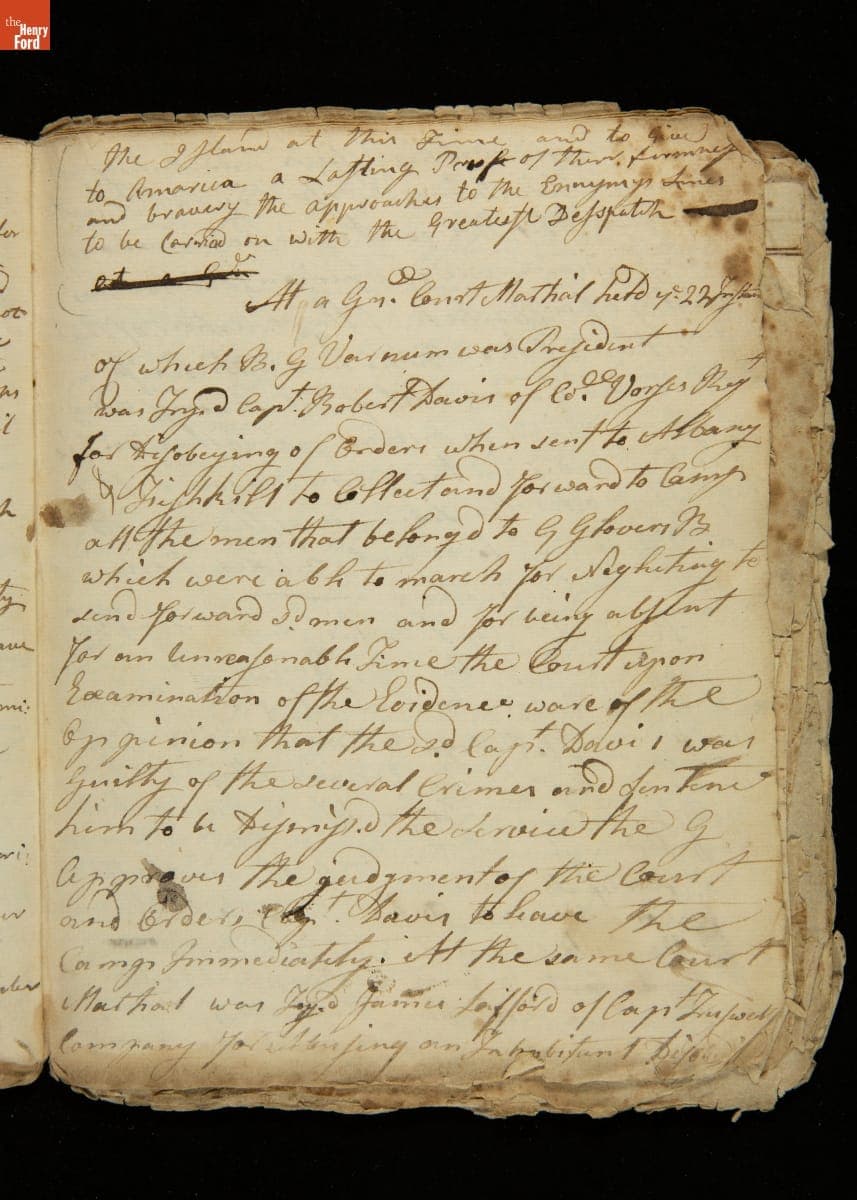 the Henry Ford
the Island at this Time and to Give
to Amarica a Lasting Proof of their firmness
and bravery the approaches to the Ennymys Lines
to be Carried on with the Greatest Despatch
At a Gnl. Court Marthal held ye 22 Instant
of which B. G Varnum was President
was Tryd Capt. Robert Davis of Col. Vorses Regt
for Disobeying of Orders when sent to Albany
& Fishkill to Collect and forward to Camp
all the men that belongd to G Glovers B
which were able to march for Neglecting to
send forward sd men and for being absent
for an Unreasonable Time the Court upon
Examination of the Evidence ware of the
Oppinion that the sd Capt. Davis was
Guilty of the several Crimes and Sentence
him to be Dismissd the Service the G
Approves the Judgment of the Court
and Orders Capt. Davis to leave the
Camp Immediately. At the same Court
Marthal was Tryd James Safford of Capt
Company for Abusing an Inhabitant